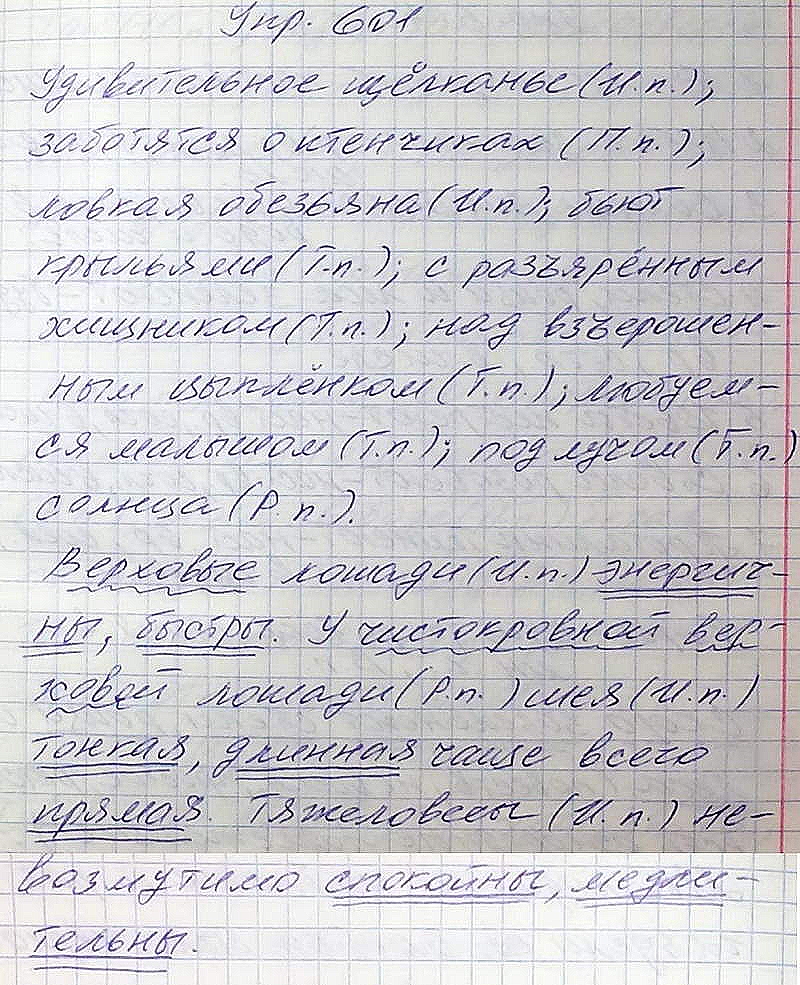 Упр. 601
Удивительное щёлканье (И.п.);
заботятся о птенчиках (П.п.);
ловкая обезьяна (И.п.); бьют
крыльями (Т.п.); с разъярённым
хищником (Т.п.); над взъерошен-
ным цыплёнком (Т.п.); любуем-
ся малышом (Т.п.); под лучом (Т.п.)
солнца (Р.п.).
Верховые лошади (И.п.) энергич-
ны, быстры. У чистокровной вер-
ховой лошади (Р.п.) шея (И.п.)
тонкая, длинная чаще всего
прямая. Тяжеловесы (И.п.) не-
возмутимо спокойны, медли-
тельны.